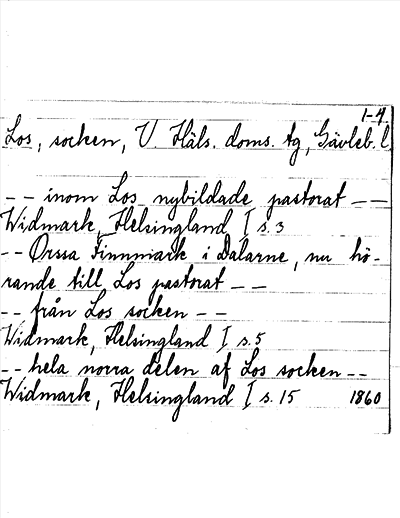 1-4
Los, socken, V. Häls. doms. tg, Gävleb. l.
-- inom Los nybildade pastorat --
Widmark, Helsingland I s. 3
-- Orssa Finnmark i Dalarne, nu hö-
rande till Los pastorat --
-- från Los socken --
Widmark, Helsingland I s. 5
-- hela norra delen af Los socken --
Widmark, Helsingland I s. 15 1860